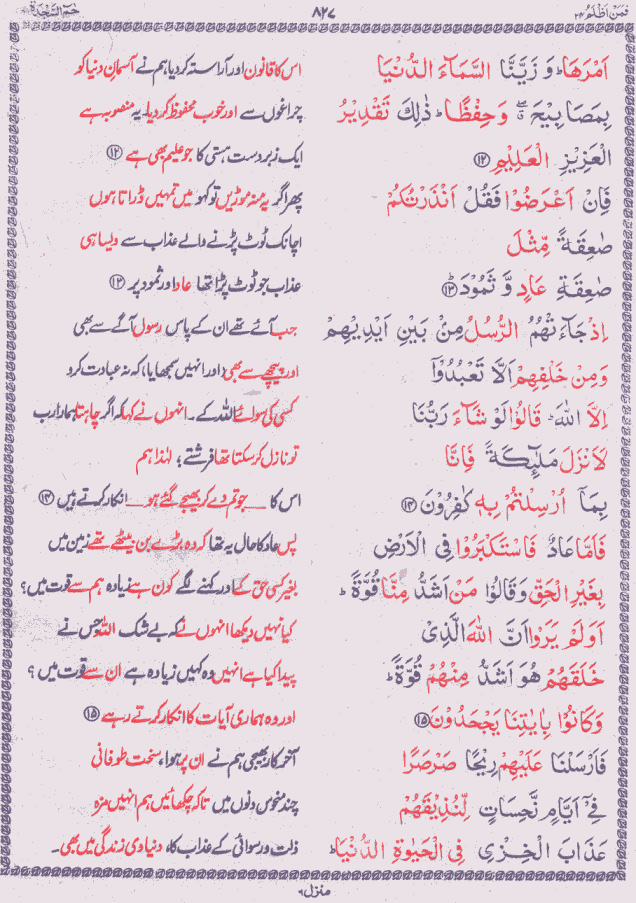 فَمَنْ اَظْلَمُ ۲۴
۸۲۷
حٰمٓ السَّجْدَة
اَمْرَهَا ؕ وَ زَيَّنَّا السَّمَآءَ الدُّنْيَا
اس کا قانون اور آراستہ کردیا ہم نے آسمانِ دنیا کو
بِمَصَابِيْحَ ۖ ۗ وَحِفْظًا ؕ ذٰلِكَ تَقْدِيْرُ
چراغوں سے اور خوب محفوظ کردیا۔ یہ منصوبہ ہے
الْعَزِيْزِ الْعَلِيْمِ ⑫
ایک زبردست ہستی کا جو علیم بھی ہے ⑫
فَاِنْ اَعْرَضُوْا فَقُلْ اَنْذَرْتُكُمْ
پھر اگر یہ منہ موڑیں تو کہو میں تمہیں ڈراتا ہوں
صٰعِقَةً مِّثْلَ
اچانک ٹوٹ پڑنے والے عذاب سے ویسا ہی
صٰعِقَةِ عَادٍ وَّ ثَمُوْدَ ⑬
عذاب جو ٹوٹ پڑا تھا عاد اور ثمود پر ⑬
اِذْ جَآءَتْهُمُ الرُّسُلُ مِنْ بَيْنِ اَيْدِيْهِمْ
جب آئے تھے ان کے پاس رسول آگے سے بھی
وَمِنْ خَلْفِهِمْ اَلَّا تَعْبُدُوْٓا
اور پیچھے سے بھی (اور انہیں سمجھایا) کہ نہ عبادت کرو
اِلَّا اللّٰهَ ؕ قَالُوْا لَوْ شَآءَ رَبُّنَا
کسی کی سوائے اللہ کے۔ انہوں نے کہا کہ اگر چاہتا ہمارا رب
لَاَنْزَلَ مَلٰٓئِكَةً فَاِنَّا
تو نازل کرسکتا تھا فرشتے؛ لہٰذا ہم
بِمَآ اُرْسِلْتُمْ بِهٖ كٰفِرُوْنَ ⑭
اس کا ــ جو تم دے کر بھیجے گئے ہو ــ انکار کرتے ہیں ⑭
فَاَمَّا عَادٌ فَاسْتَكْبَرُوْا فِى الْاَرْضِ
پس عاد کا حال یہ تھا کہ وہ بڑے بن بیٹھے تھے زمین میں
بِغَيْرِ الْحَقِّ وَقَالُوْا مَنْ اَشَدُّ مِنَّا قُوَّةً ؕ
بغیر کسی حق کے اور کہنے لگے کون ہے زیادہ ہم سے قوت میں؟
اَوَلَمْ يَرَوْا اَنَّ اللّٰهَ الَّذِىْ
کیا نہیں دیکھا انہوں نے کہ بے شک اللہ جس نے
خَلَقَهُمْ هُوَ اَشَدُّ مِنْهُمْ قُوَّةً ؕ
پیدا کیا ہے انہیں وہ کہیں زیادہ ہے ان سے قوت میں؟
وَكَانُوْا بِاٰيٰتِنَا يَجْحَدُوْنَ ⑮
اور وہ ہماری آیات کا انکار کرتے رہے ⑮
فَاَرْسَلْنَا عَلَيْهِمْ رِيْحًا صَرْصَرًا
آخر کار بھیجی ہم نے ان پر ہوا، سخت طوفانی
فِىْٓ اَيَّامٍ نَّحِسَاتٍ لِّنُذِيْقَهُمْ
چند منحوس دنوں میں تاکہ چکھائیں ہم انہیں مزہ
عَذَابَ الْخِزْىِ فِى الْحَيٰوةِ الدُّنْيَا ؕ
ذلت و رسوائی کے عذاب کا، دنیاوی زندگی میں بھی۔
منزل ۶